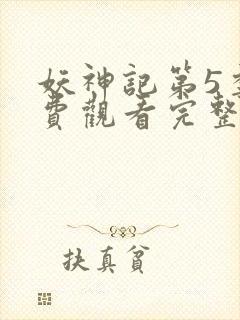 妖神記第5
費觀看完整
扶真貧